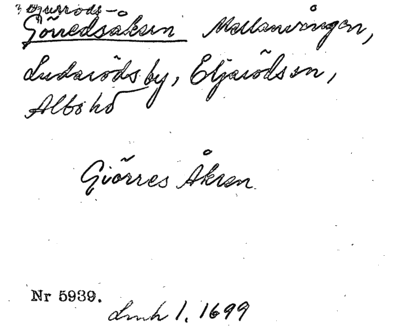 Görredsåkern Mellanvången,
Ludarödsby, Eljarödssn,
Albo hd
Giörres Åkren
Nr 5939.
Lmh 1. 1699